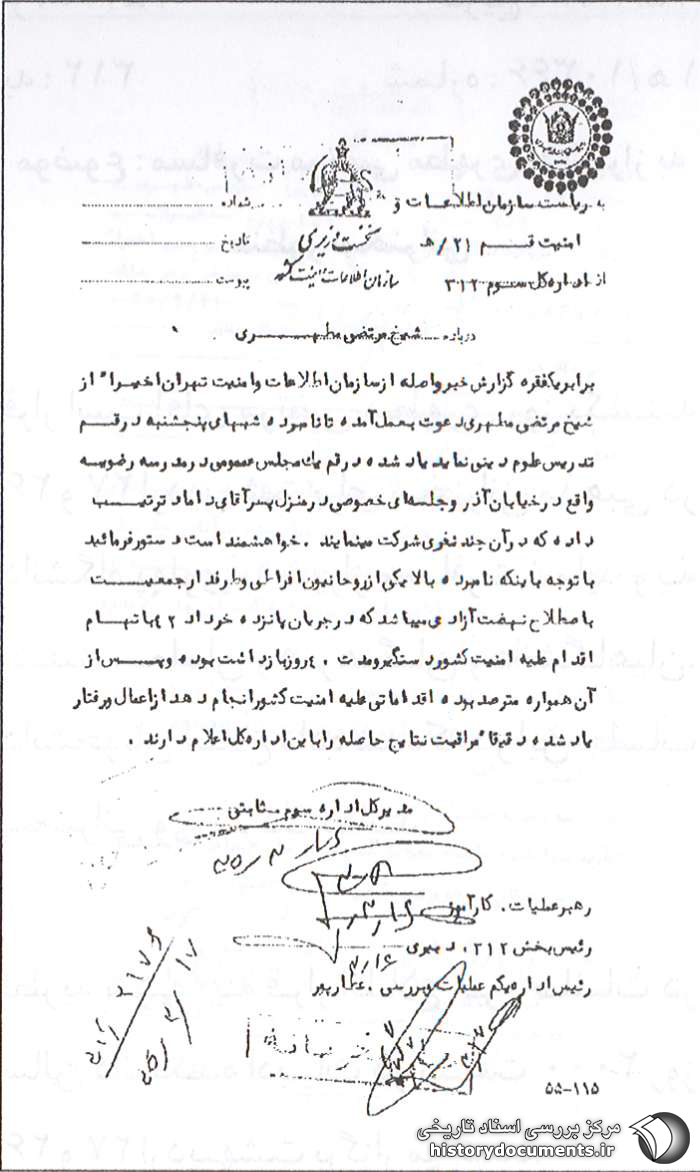 به ریاست سازمان اطلاعات و
امنیت قم ۲۱/ هـ
از اداره کل سوم ۳۱۲
نخست وزیری
سازمان اطلاعات و امنیت کشور
شماره
تاریخ
پیوست
درباره شیخ مرتضی مطهری
برابر یکفقره گزارش خبر واصله از سازمان اطلاعات و امنیت تهران اخیراً از
شیخ مرتضی مطهری دعوت بعمل آمده تا نامبرده شبهای پنجشنبه در قم
تدریس علوم دینی نماید یاد شده در قم یک مجلس عمومی در مدرسه رضویه
واقع در خیابان آذر و جلسه‌ای خصوصی در منزل پسر آقای داماد ترتیب
داده که در آن چند نفری شرکت مینمایند . خواهشمند است دستور فرمائید
با توجه باینکه نامبرده بالا یکی از روحانیون افراطی و طرفدار جمعیت
باصطلاح نهضت آزادی میباشد که در جریان پانزده خرداد ۴۲ باتهام
اقدام علیه امنیت کشور دستگیر و مدت ۴۰ روز بازداشت بوده و پس از
آن همواره مترصد بوده اقداماتی علیه امنیت کشور انجام دهد از اعمال و رفتار
یاد شده دقیقاً مراقبت نتایج حاصله را باین اداره کل اعلام دارند .
مدیر کل اداره سوم . ثابتی
رهبر عملیات . کارآموز
رئیس بخش ۳۱۲ . دبیری
۳/۱۶
رئیس اداره یکم عملیات و بررسی . عطارپور
۵۵-۱۱۵
مرکز بررسی اسناد تاریخی
historydocuments.ir